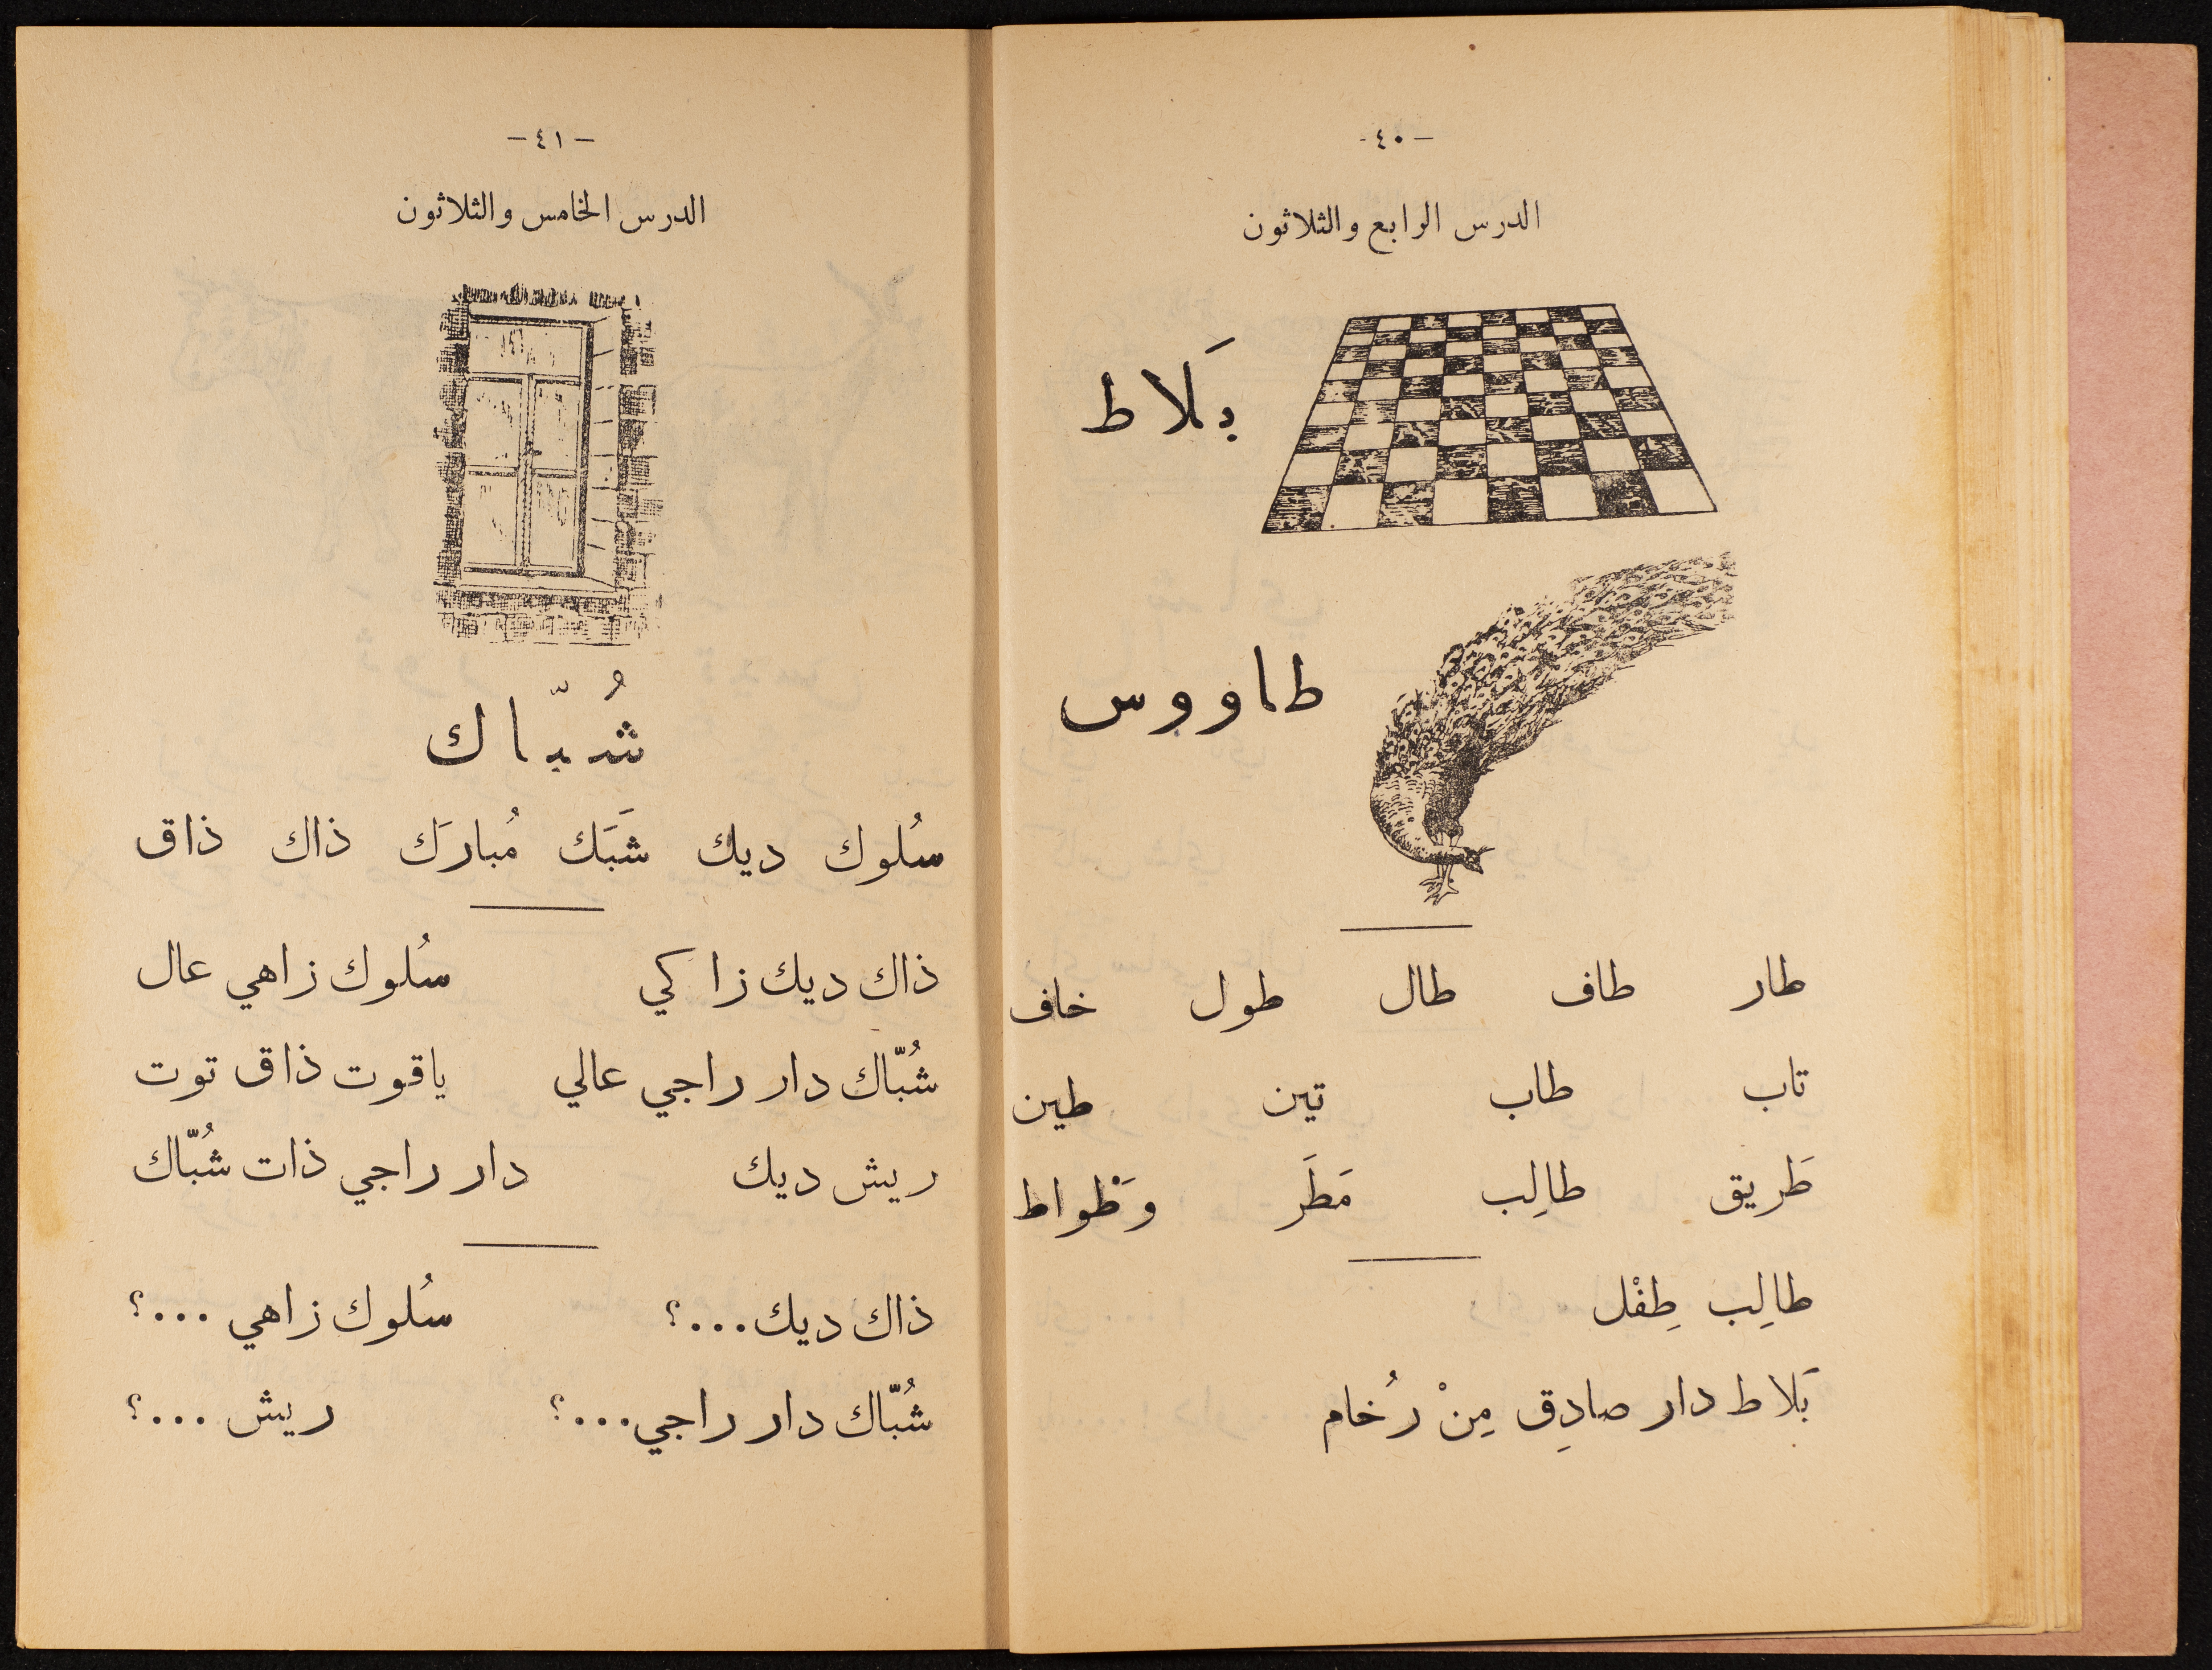 - ٤٠ -
الدرس الرابع والثلاثون
بَلاط
طاووس
طار طاف طال طول خاف
تاب طاب تين طين
طَريق طالِب مَطَر وَطْواط
طالِب طِفْل
بَلاط دار صادِق مِنْ رُخام
- ٤١ -
الدرس الخامس والثلاثون
شُبّاك
سُلوك ديك شَبَك مُبارَك ذاك ذاق
ذاك ديك زاكي سُلوك زاهي عال
شُبّاك دار راجي عالي ياقوت ذاق توت
ريش ديك دار راجي ذات شُبّاك
ذاك ديك...؟ سُلوك زاهي ...؟
شُبّاك دار راجي...؟ ريش ...؟